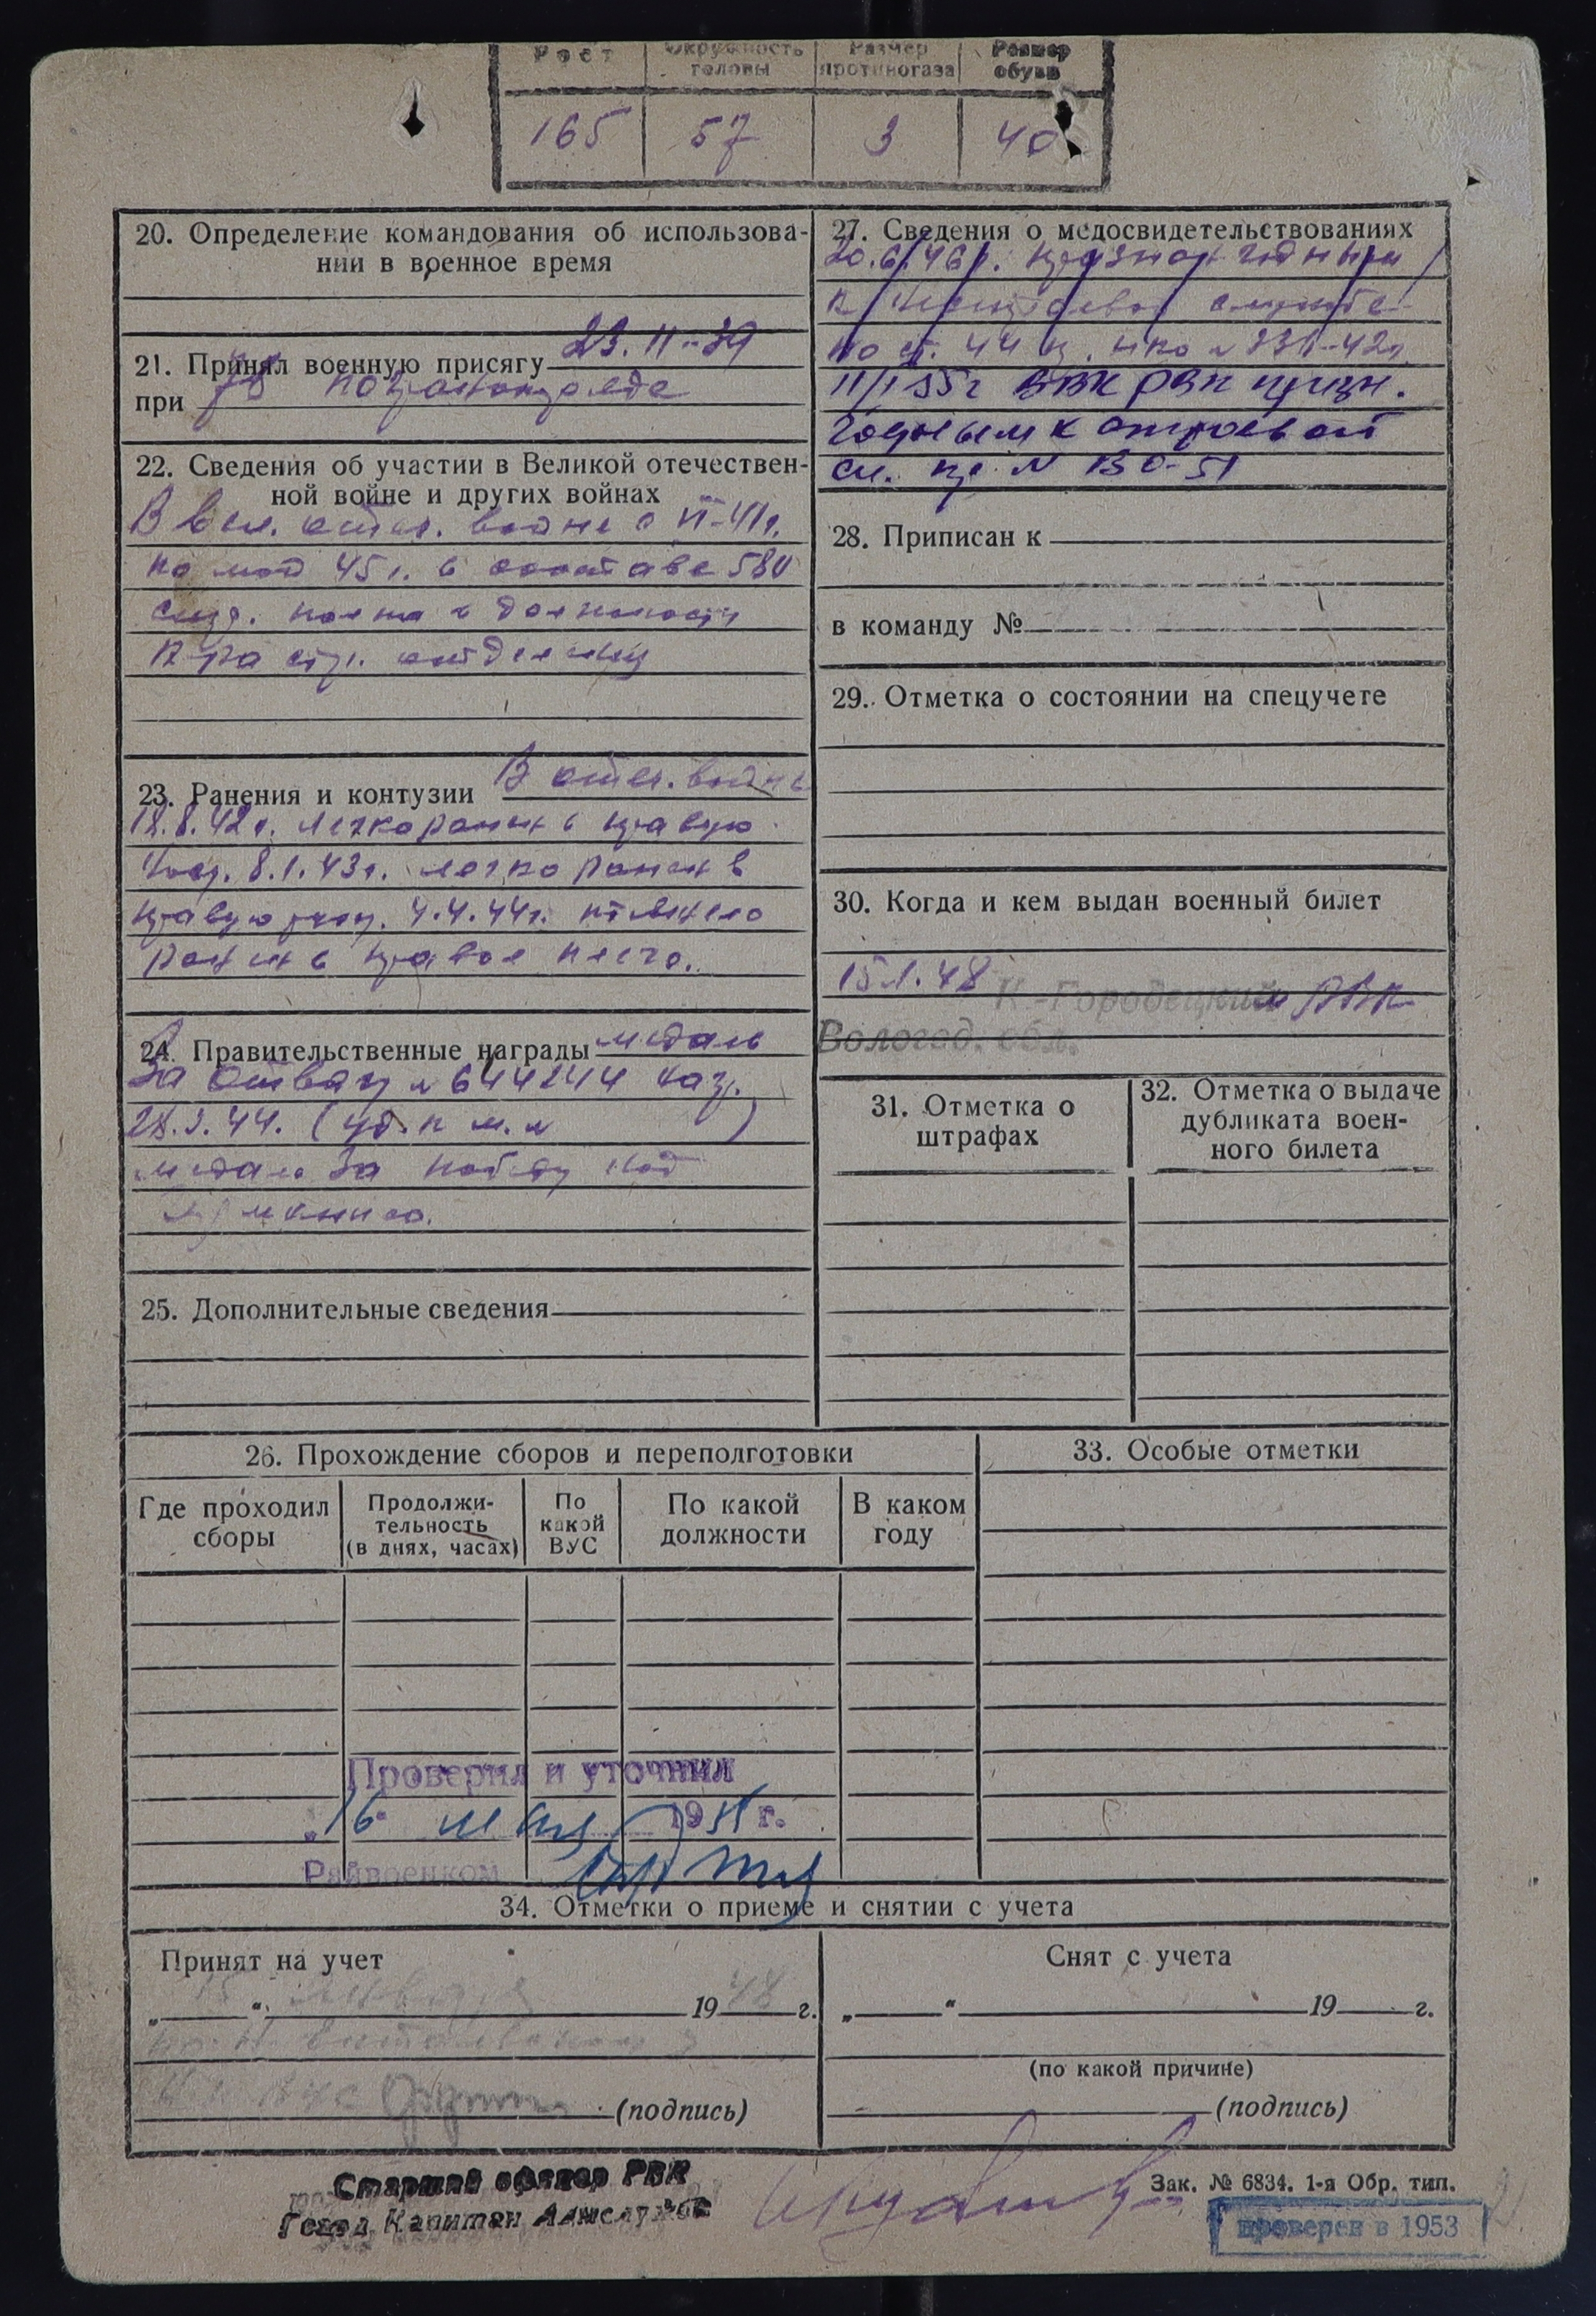 Рост Окружность головы Размер противогаза Размер обуви
165 57 3 40
20. Определение командования об использова-
нии в военное время
21. Принял военную присягу 23.11-39
при погранотряде
22. Сведения об участии в Великой отечествен-
ной войне и других войнах
В вел. отеч. войне с VI-41г.
по май 45г. в составе 580
стр. полка в должности
к-ра стр. отделения
23. Ранения и контузии В отеч. войне
18.8.42г. легко ранен в правую
ногу. 8.1.43г. легко ранен в
правую ногу. 4.4.44г. тяжело
ранен в правое плечо.
24. Правительственные награды медаль
За отвагу № 644244
44. (уд. к м. № )
медаль За победу над
Германией.
25. Дополнительные сведения
26. Прохождение сборов и переподготовки
Где проходил сборы Продолжи-тельность (в днях, часах) По какой ВУС По какой должности В каком году
Проверил и уточнил
„16“ мая 1955 г.
Райвоенком
27. Сведения о медосвидетельствованиях
20.6.46г. признан годным
к нестроевой службе
по ст. 44 пр. НКО № 336-42г.
11/I 55г ВВК РВК призн.
годным к строевой
сл. пр. № 130-51
28. Приписан к
в команду №
29. Отметка о состоянии на спецучете
30. Когда и кем выдан военный билет
15.1.48 К-Городецким РВК
Вологод. обл.
31. Отметка о
штрафах
32. Отметка о выдаче
дубликата воен-
ного билета
33. Особые отметки
34. Отметки о приеме и снятии с учета
Принят на учет
„15“ января 1948 г.
(подпись)
Снят с учета
„ “ 19 г.
(по какой причине)
(подпись)
Старший офицер РВК
Капитан
Зак. № 6834. 1-я Обр. тип.
проверен в 1953